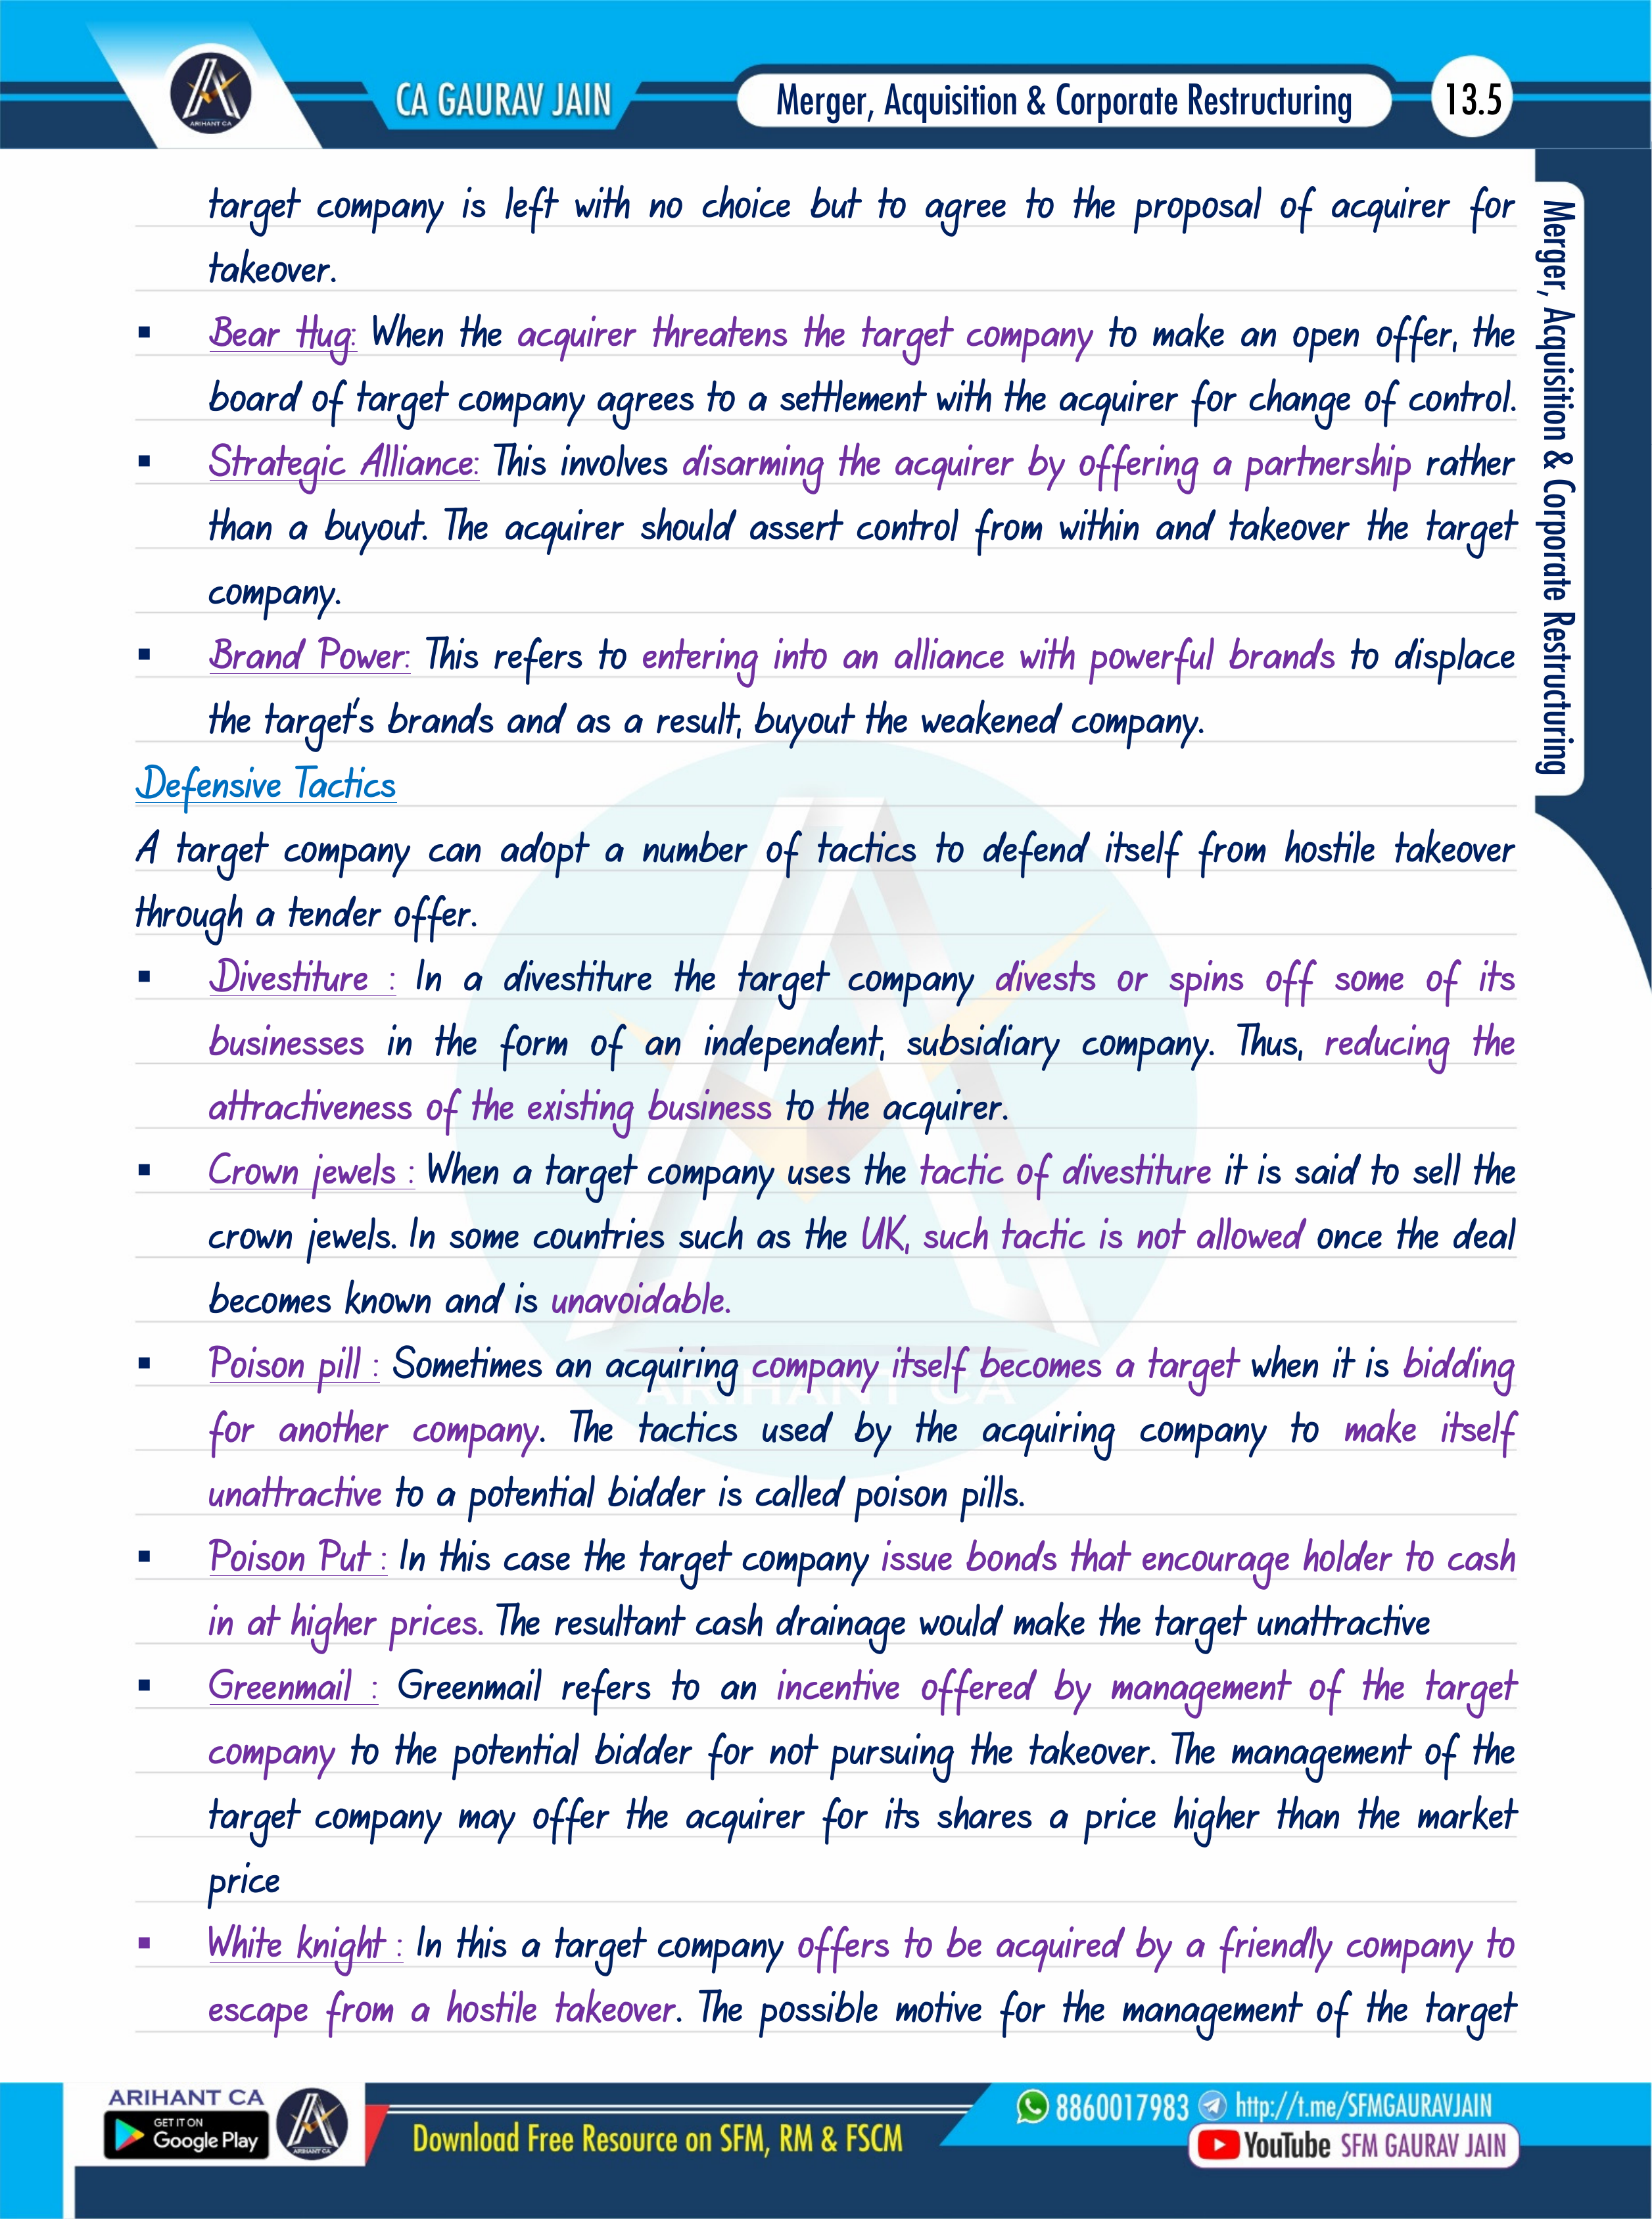 ARIHANT CA
CA GAURAV JAIN
Merger, Acquisition & Corporate Restructuring
13.5
Merger, Acquisition & Corporate Restructuring
target company is left with no choice but to agree to the proposal of acquirer for
takeover.
▪ Bear Hug: When the acquirer threatens the target company to make an open offer, the
board of target company agrees to a settlement with the acquirer for change of control.
▪ Strategic Alliance: This involves disarming the acquirer by offering a partnership rather
than a buyout. The acquirer should assert control from within and takeover the target
company.
▪ Brand Power: This refers to entering into an alliance with powerful brands to displace
the target's brands and as a result, buyout the weakened company.
Defensive Tactics
A target company can adopt a number of tactics to defend itself from hostile takeover
through a tender offer.
▪ Divestiture : In a divestiture the target company divests or spins off some of its
businesses in the form of an independent, subsidiary company. Thus, reducing the
attractiveness of the existing business to the acquirer.
▪ Crown jewels : When a target company uses the tactic of divestiture it is said to sell the
crown jewels. In some countries such as the UK, such tactic is not allowed once the deal
becomes known and is unavoidable.
▪ Poison pill : Sometimes an acquiring company itself becomes a target when it is bidding
for another company. The tactics used by the acquiring company to make itself
unattractive to a potential bidder is called poison pills.
▪ Poison Put : In this case the target company issue bonds that encourage holder to cash
in at higher prices. The resultant cash drainage would make the target unattractive
▪ Greenmail : Greenmail refers to an incentive offered by management of the target
company to the potential bidder for not pursuing the takeover. The management of the
target company may offer the acquirer for its shares a price higher than the market
price
▪ White knight : In this a target company offers to be acquired by a friendly company to
escape from a hostile takeover. The possible motive for the management of the target
ARIHANT CA
ARIHANT CA
GET IT ON
Google Play
ARIHANT CA
Download Free Resource on SFM, RM & FSCM
8860017983 http://t.me/SFMGAURAVJAIN
YouTube SFM GAURAV JAIN